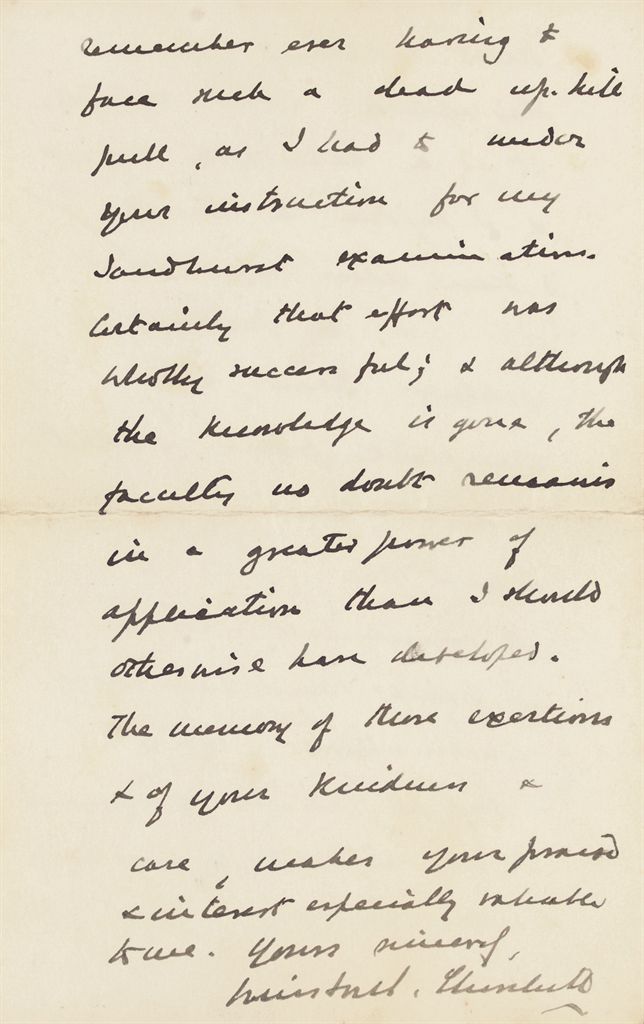 remember ever having to
face such a dead up-hill
pull, as I had to under
your instruction for my
Sandhurst examination.
Certainly that effort was
wholly successful; & although
the knowledge is gone, the
faculty no doubt remains
in a greater power of
application than I should
otherwise have developed.
The memory of those exertions
& of your kindness &
care, makes your praise
& interest especially valuable
to me. Yours sincerely,
Winston S. Churchill